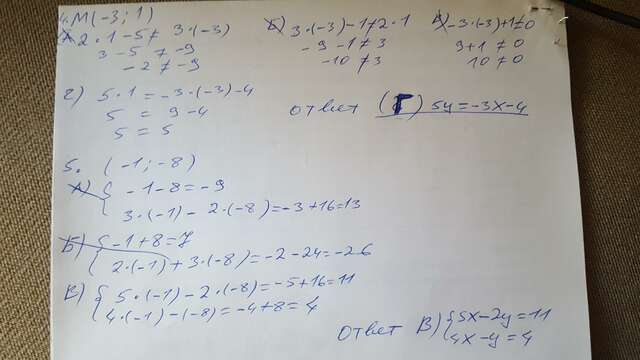 4. М(-3; 1)
А) 2·1-5≠ 3·(-3)
3-5 ≠ -9
-2 ≠ -9
Б) 3·(-3)-1≠2·1
-9-1≠3
-10≠3
В) -3·(-3)+1≠0
9+1≠0
10≠0
г) 5·1=-3·(-3)-4
5 = 9-4
5 = 5
ответ (Г) 5у=-3х-4
5. (-1; -8)
А) { -1-8=-9
3·(-1)-2·(-8)=-3+16=13
Б) { -1+8=7
2·(-1)+3·(-8)=-2-24=-26
В) { 5·(-1)-2·(-8)=-5+16=11
4·(-1)-(-8)=-4+8=4
ответ В) { 5х-2у=11
4х-у=4